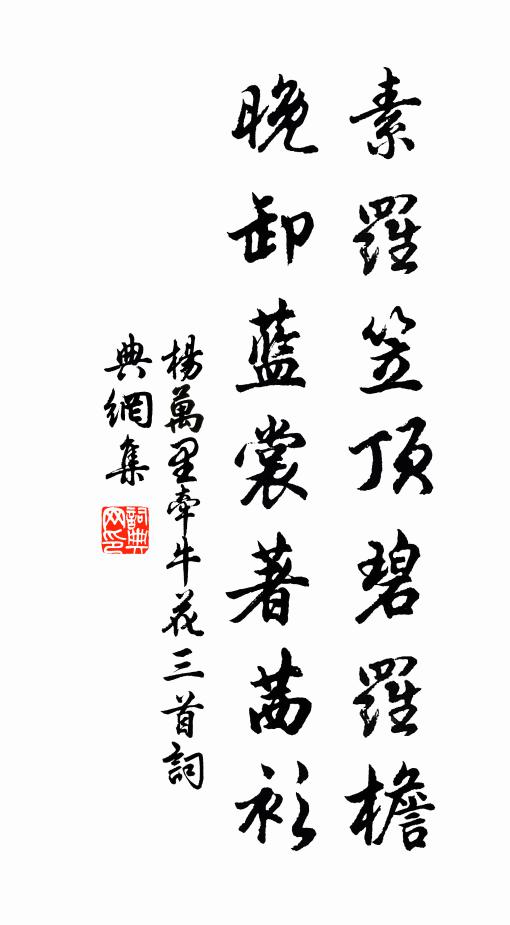 素羅笠頂碧羅檐
晚卸藍裳著茜衫
楊萬里牽牛花三首詞
典網集
詞典
网印